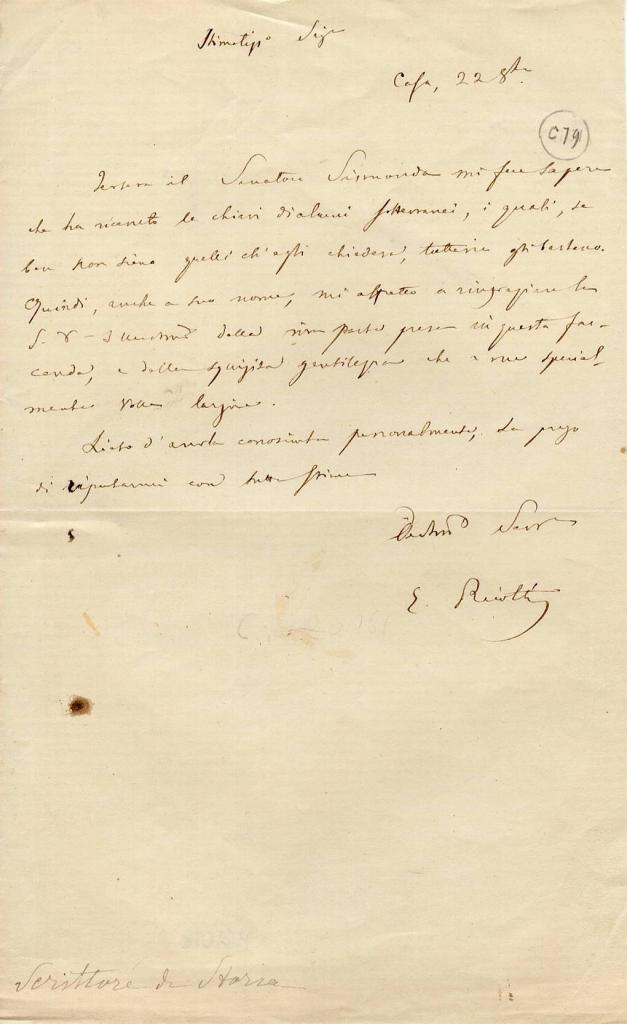 Stimatisso Sigr
Casa, 22 8bre
C79
Iersera il Senatore Sismonda mi fece sapere
che ha ricevuto le chiavi di alcuni sotterranei, i quali, se
ben non siano quelli ch'egli chiedeva, tuttavia gli bastano.
Quindi, anche a suo nome, mi affretto a ringraziare la
S. V. Illustrma della viva parte presa in questa fac-
cenda, e della squisita gentilezza che a me special-
mente volle largire.
Lieto d'averla conosciuta personalmente, La prego
di riputarmi con tutta stima
Devotmo Serve
E. Ricotti
Scrittore di Storia